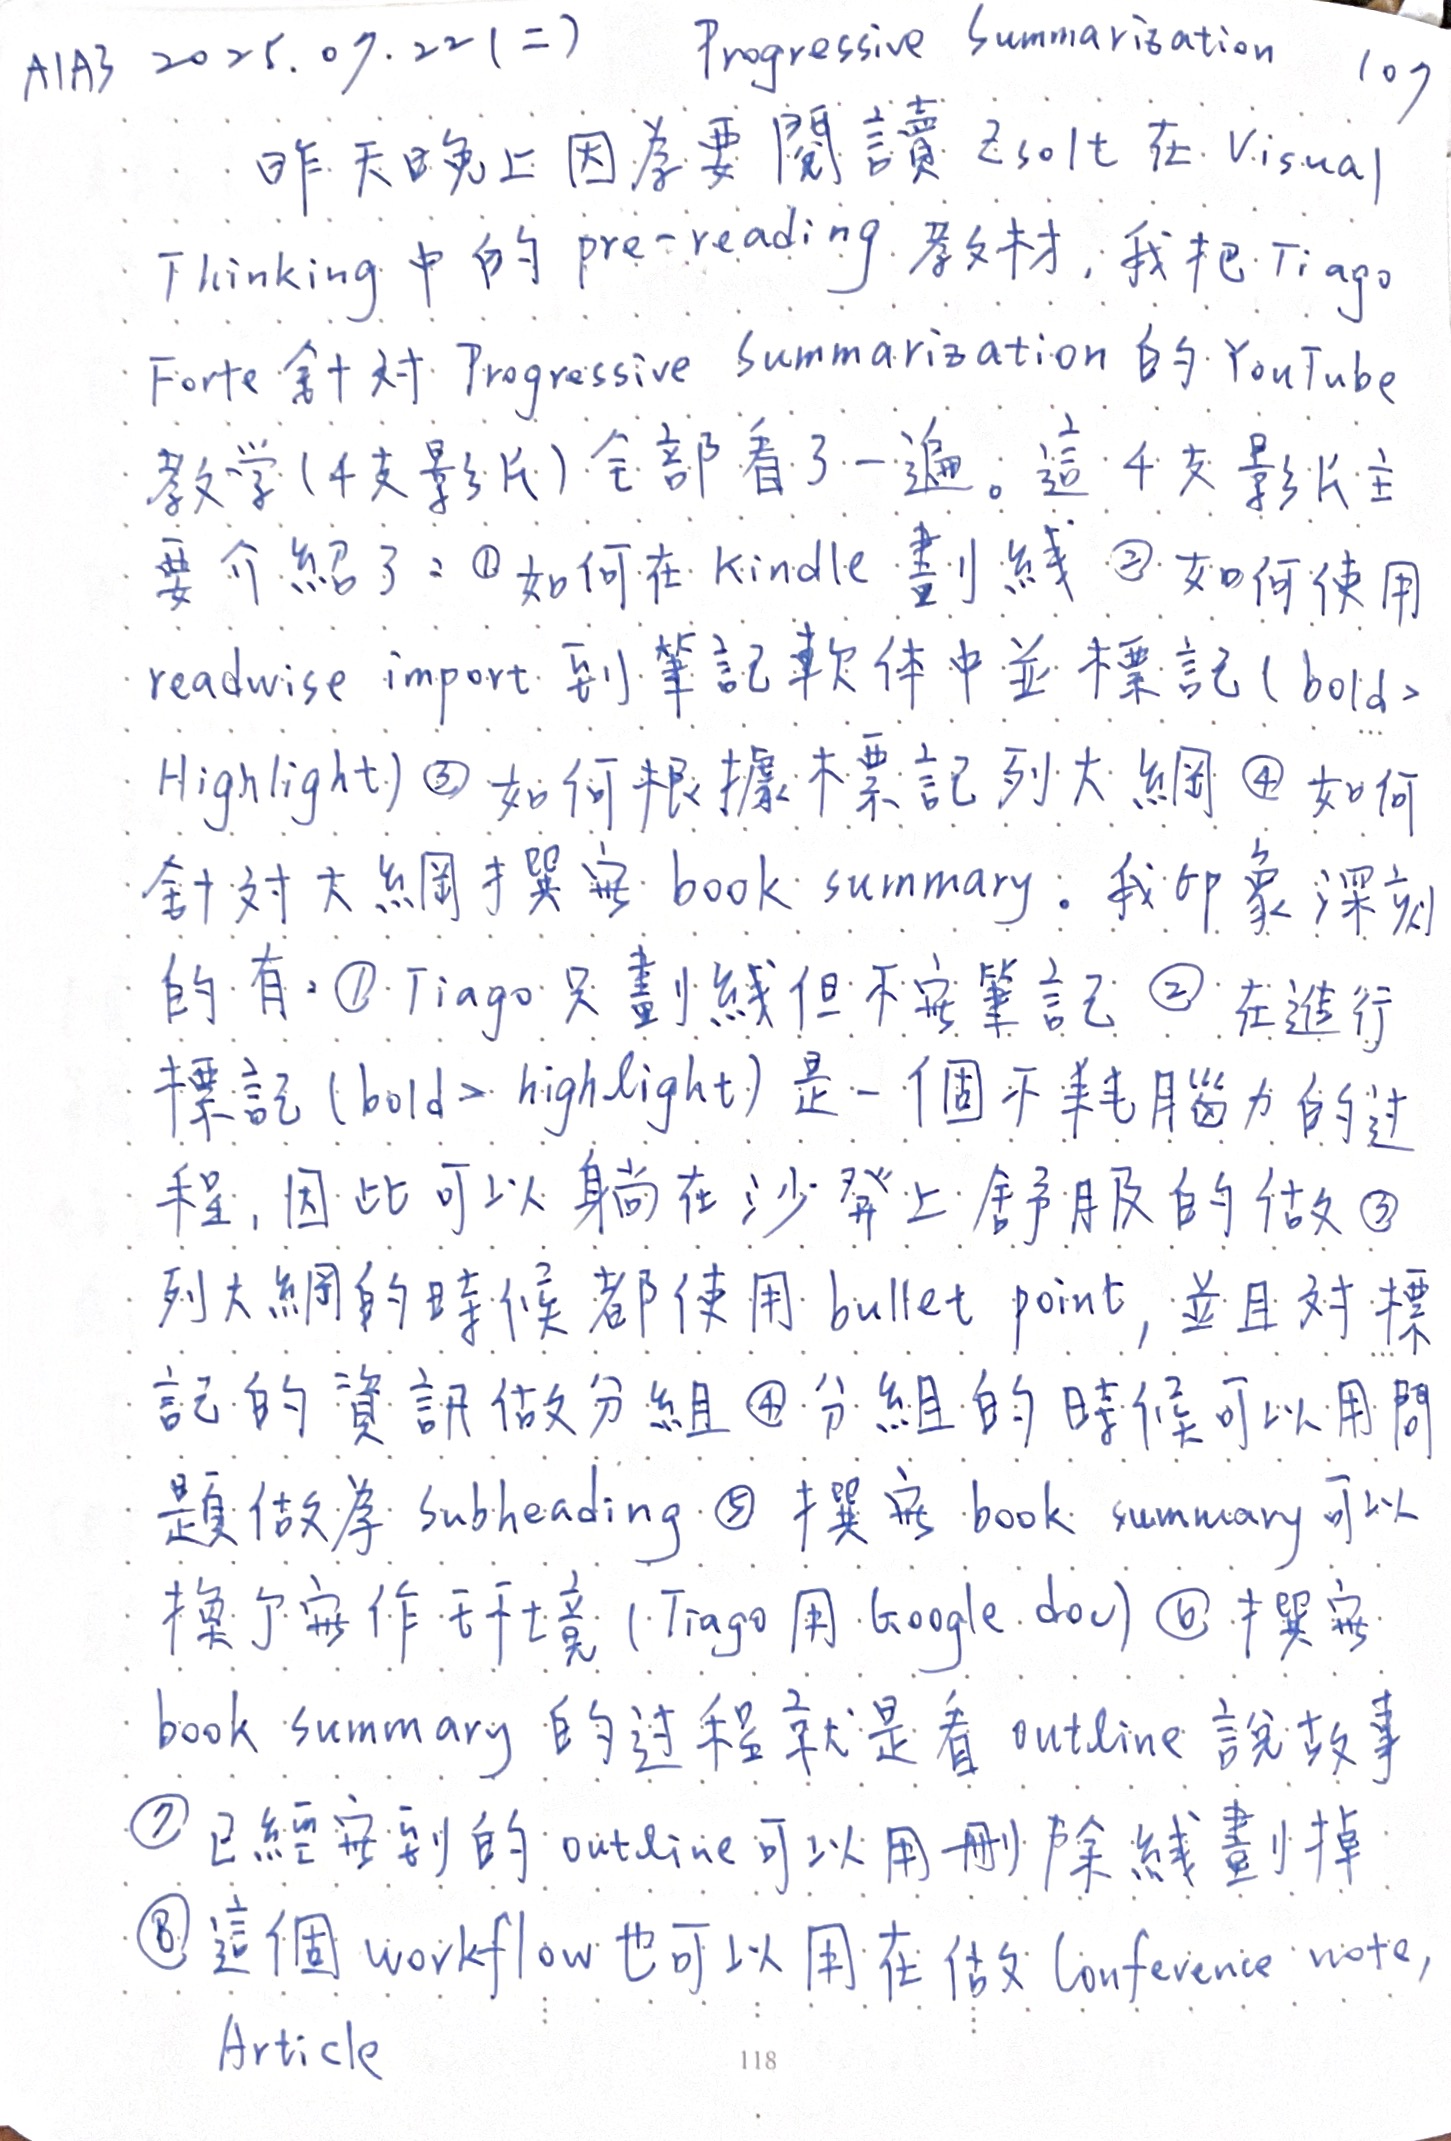 A1A3 2025.07.22(二) Progressive Summarization 107
昨天晚上因為要閱讀 Zsolt 在 Visual
Thinking 中的 pre-reading 教材，我把 Tiago
Forte 針对 Progressive Summarization 的 YouTube
教学(4支影片)全部看了一遍。這4支影片主
要介紹了：①如何在 Kindle 劃綫 ②如何使用
readwise import 到筆記軟体中並標記(bold>
Highlight) ③如何根據標記列大綱 ④如何
針对大綱撰寫 book summary。我印象深刻
的有：① Tiago 只劃綫但不寫筆記 ② 在進行
標記(bold> highlight)是一個不耗腦力的过
程，因此可以躺在沙發上舒服的做 ③
列大綱的時候都使用 bullet point，並且对標
記的資訊做分組 ④分組的時候可以用問
題做為 subheading ⑤ 撰寫 book summary 可以
換个寫作环境(Tiago 用 Google doc) ⑥撰寫
book summary 的过程就是看 outline 說故事
⑦已經寫到的 outline 可以用刪除綫劃掉
⑧這個 workflow 也可以用在做 Conference note,
Article
118